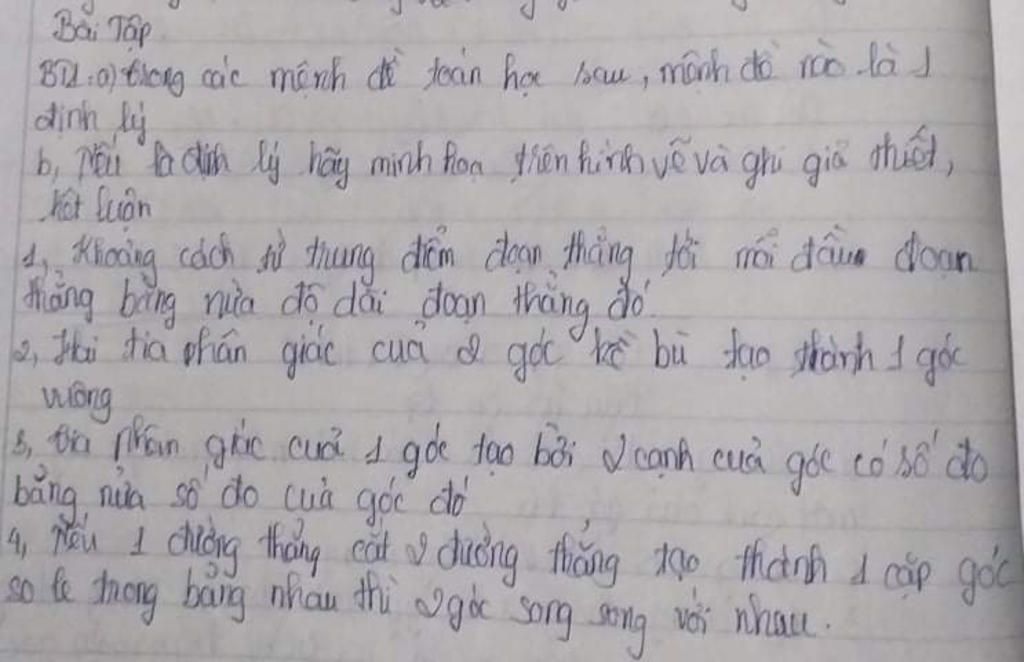 Bài Tập
BT1: a) trong các mệnh đề toán học sau, mệnh đề nào là 1
định lý
b, Nếu là định lý hãy minh hoạ trên hình vẽ và ghi giả thiết,
kết luận
1, Khoảng cách từ trung điểm đoạn thẳng tới mỗi đầu đoạn
thẳng bằng nửa độ dài đoạn thẳng đó
2, Hai tia phân giác của 2 góc kề bù tạo thành 1 góc
vuông
3, tia phân giác của 1 góc tạo bởi 2 cạnh của góc có số đo
bằng nửa số đo của góc đó
4, Nếu 1 đường thẳng cắt 2 đường thẳng tạo thành 1 cặp góc
so le trong bằng nhau thì 2 góc song song với nhau.